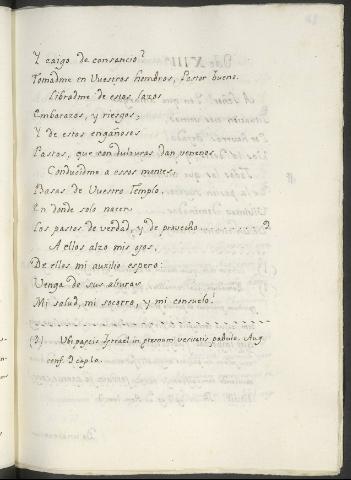 Y caigo de consancio?
Tomadme en Vuestros hombros, Pastor bueno.
Libradme de estos lazos
Embarazos, y riesgos;
Y de estos engañosos
Pastos, que con dulzuras dan venenos.
Conducidme a essos montes,
Basas de Vuestro Templo,
En donde solo nacen
Los pastos de verdad, y de provecho
A ellos alzo mis ojos,
De ellos mi auxilio espero:
Venga de sus alturas
Mi salud, mi socorro, y mi consuelo!
Ubi pascis Israel in aeternum veritatis pabulo. Aug.
conf.